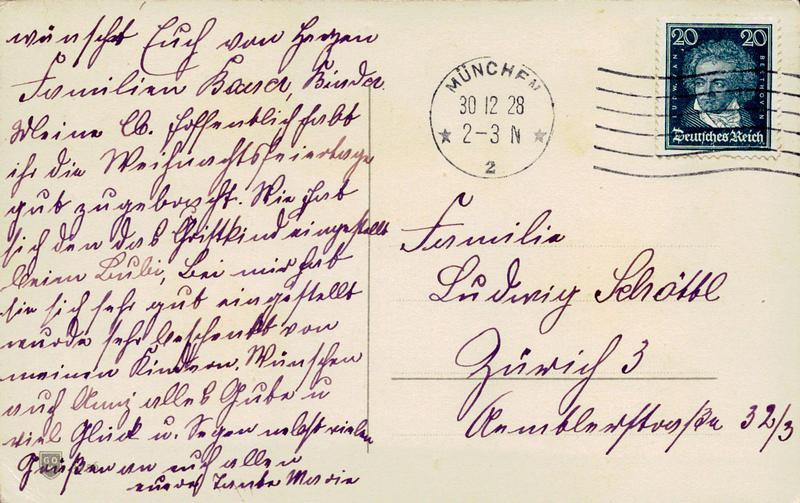 wünscht Euch von Herzen
Familien Bauer, Binder.
Meine Lb. Hoffentlich habt
ihr die Weihnachtsfeiertage
gut zugebracht. Wie hat
sich den das Christkind eingestellt
beim Bubi, bei mir hat
sie sich sehr gut eingestellt
wurde sehr beschenkt von
meinen Kindern. Wünschen
auch Anny alles Gute u
viel Glück u. Segen nebst vielen
Grüßen an euch allen
eure Tante Marie
MÜNCHEN
30 12 28
2-3 N
2
20 20
LUDW. VAN BEETHOVEN
Deutsches Reich
Familie
Ludwig Schöttl
Zürich 3
Aemtlerstraße 32/3
GO